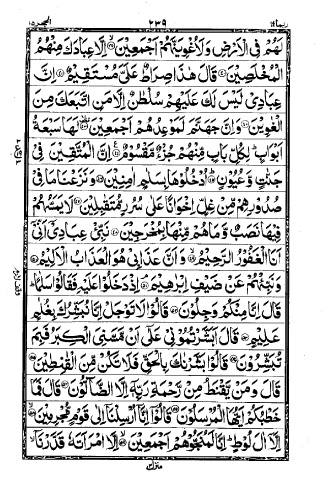 الحجر ۱۵ ۲۳۹ ربما ۱۴
لَهُمْ فِى الْاَرْضِ وَلَاُغْوِيَنَّهُمْ اَجْمَعِيْنَ اِلَّا عِبَادَكَ مِنْهُمُ
الْمُخْلَصِيْنَ قَالَ هٰذَا صِرَاطٌ عَلَىَّ مُسْتَقِيْمٌ اِنَّ
عِبَادِىْ لَيْسَ لَكَ عَلَيْهِمْ سُلْطٰنٌ اِلَّا مَنِ اتَّبَعَكَ مِنَ
الْغٰوِيْنَ وَاِنَّ جَهَنَّمَ لَمَوْعِدُهُمْ اَجْمَعِيْنَ لَهَا سَبْعَةُ
اَبْوَابٍ لِكُلِّ بَابٍ مِّنْهُمْ جُزْءٌ مَّقْسُوْمٌ اِنَّ الْمُتَّقِيْنَ فِىْ
جَنّٰتٍ وَّعُيُوْنٍ اُدْخُلُوْهَا بِسَلٰمٍ اٰمِنِيْنَ وَنَزَعْنَا مَا فِىْ
صُدُوْرِهِمْ مِّنْ غِلٍّ اِخْوَانًا عَلٰى سُرُرٍ مُّتَقٰبِلِيْنَ لَا يَمَسُّهُمْ
فِيْهَا نَصَبٌ وَّمَا هُمْ مِّنْهَا بِمُخْرَجِيْنَ نَبِّئْ عِبَادِىْۤ اَنِّىْۤ
اَنَا الْغَفُوْرُ الرَّحِيْمُ وَاَنَّ عَذَابِىْ هُوَ الْعَذَابُ الْاَلِيْمُ
وَنَبِّئْهُمْ عَنْ ضَيْفِ اِبْرٰهِيْمَ اِذْ دَخَلُوْا عَلَيْهِ فَقَالُوْا سَلٰمًا
قَالَ اِنَّا مِنْكُمْ وَجِلُوْنَ قَالُوْا لَا تَوْجَلْ اِنَّا نُبَشِّرُكَ بِغُلٰمٍ
عَلِيْمٍ قَالَ اَبَشَّرْتُمُوْنِىْ عَلٰۤى اَنْ مَّسَّنِىَ الْكِبَرُ فَبِمَ
تُبَشِّرُوْنَ قَالُوْا بَشَّرْنٰكَ بِالْحَقِّ فَلَا تَكُنْ مِّنَ الْقٰنِطِيْنَ
قَالَ وَمَنْ يَّقْنَطُ مِنْ رَّحْمَةِ رَبِّهٖۤ اِلَّا الضَّآلُّوْنَ قَالَ فَمَا
خَطْبُكُمْ اَيُّهَا الْمُرْسَلُوْنَ قَالُوْۤا اِنَّاۤ اُرْسِلْنَاۤ اِلٰى قَوْمٍ مُّجْرِمِيْنَ
اِلَّاۤ اٰلَ لُوْطٍ اِنَّا لَمُنَجُّوْهُمْ اَجْمَعِيْنَ اِلَّا امْرَاَتَهٗ قَدَّرْنَاۤ
منزل